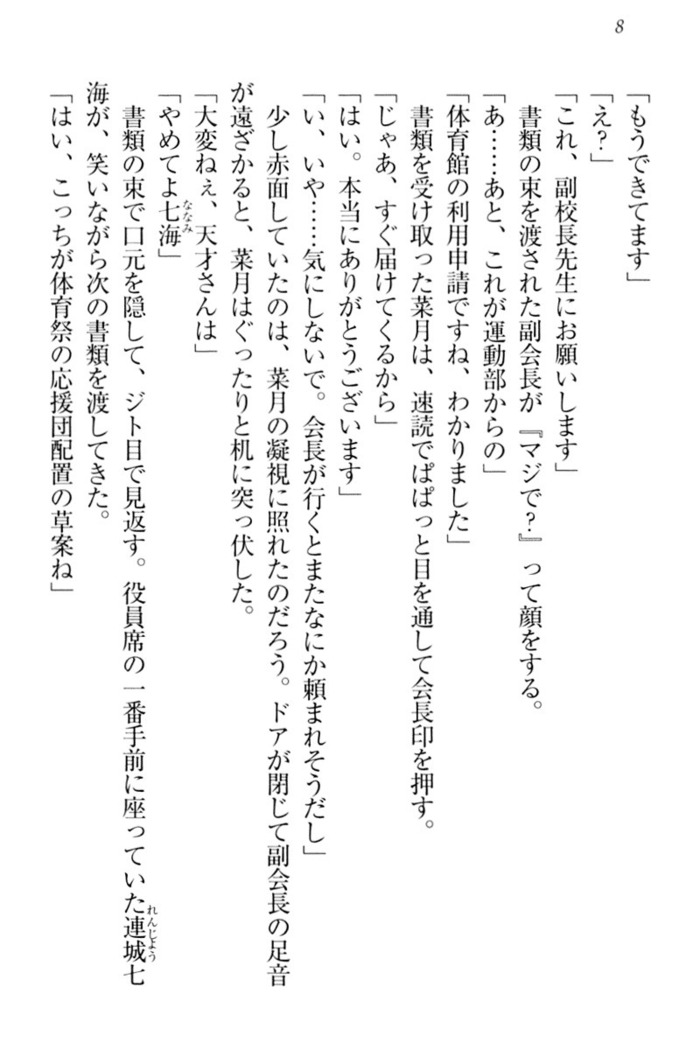 8
「もうできてます」
「え?」
「これ、副校長先生にお願いします」
書類の束を渡された副会長が『マジで?』って顔をする。
「あ……あと、これが運動部からの」
「体育館の利用申請ですね、わかりました」
書類を受け取った菜月は、速読でぱぱっと目を通して会長印を押す。
「じゃあ、すぐ届けてくるから」
「はい。本当にありがとうございます」
「い、いや……気にしないで。会長が行くとまたなにか頼まれそうだし」
少し赤面していたのは、菜月の凝視に照れたのだろう。ドアが閉じて副会長の足音
が遠ざかると、菜月はぐったりと机に突っ伏した。
「大変ねぇ、天才さんは」
「やめてよ七海」
ななみ
書類の束で口元を隠して、ジト目で見返す。役員席の一番手前に座っていた連城七
れんじょう
海が、笑いながら次の書類を渡してきた。
「はい、こっちが体育祭の応援団配置の草案ね」